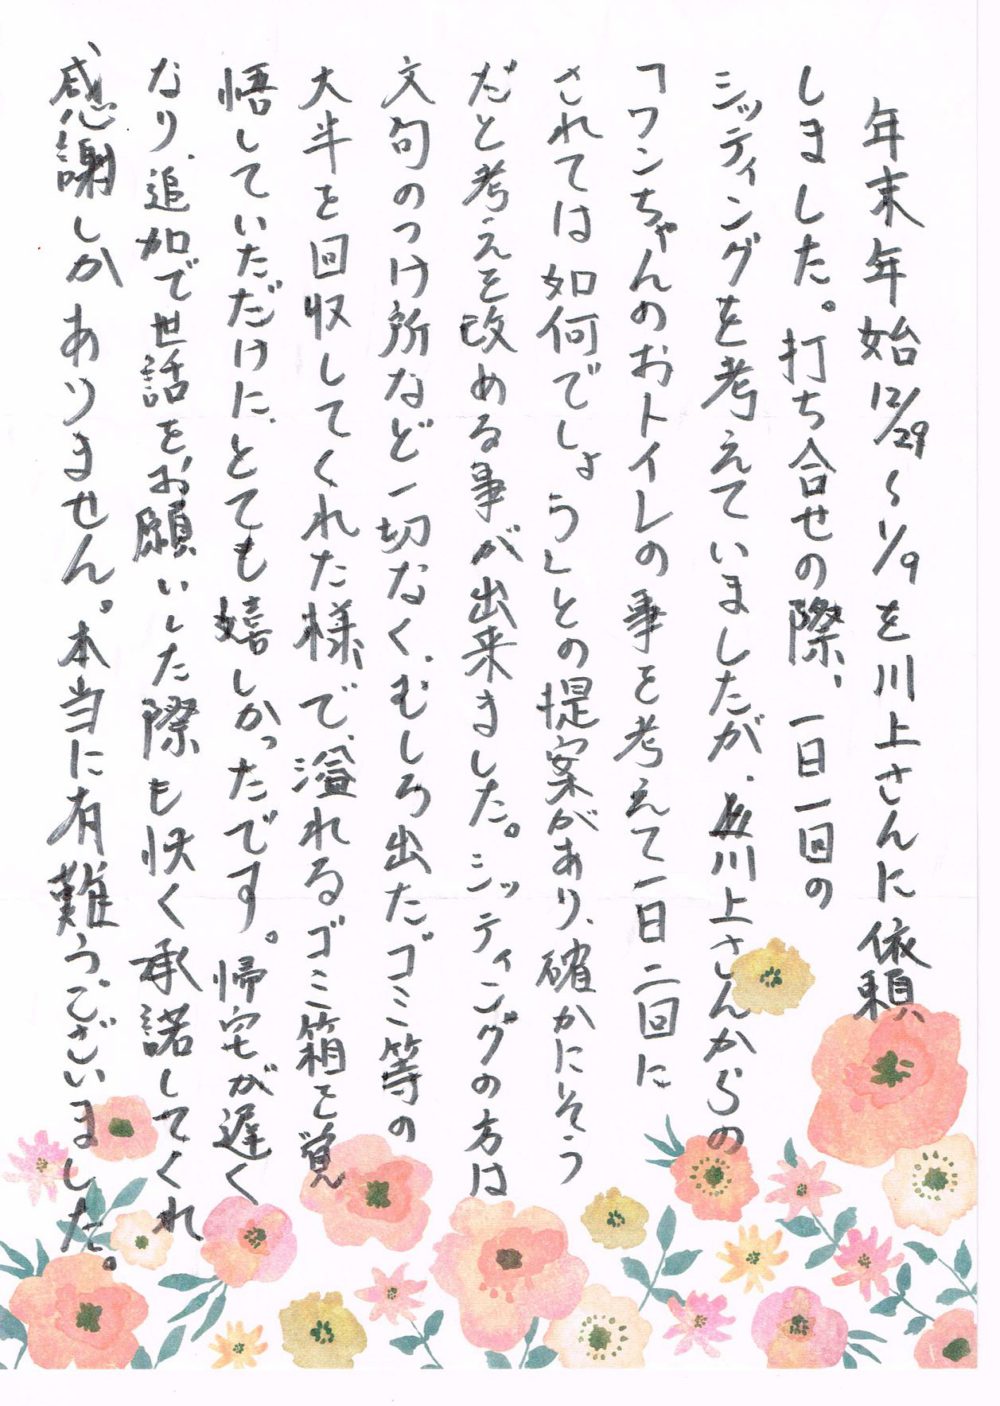 年末年始12/29~1/9を川上さんに依頼
しました。打ち合せの際、一日一回の
シッティングを考えていましたが、川上さんからの
「ワンちゃんのおトイレの事を考えて一日二回に
されては如何でしょう」との提案があり、確かにそう
だと考えを改める事が出来ました。シッティングの方は
文句のつけ所など一切なく、むしろ出たゴミ等の
大半を回収してくれた様で、溢れるゴミ箱を覚
悟していただけに、とても嬉しかったです。帰宅が遅く
なり、追加で世話をお願いした際も快く承諾してくれ
感謝しかありません。本当に有難うございました。